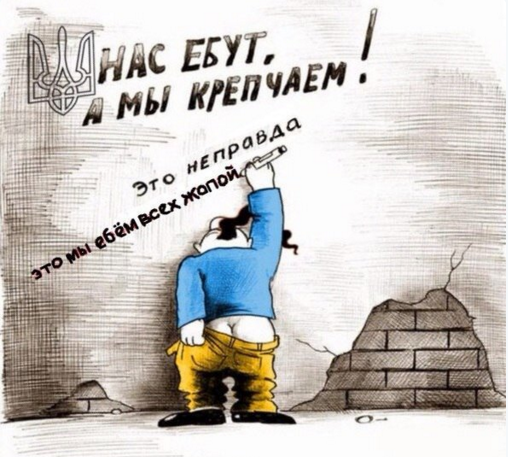 НАС ЕБУТ,
А МЫ КРЕПЧАЕМ!
ЭТО НЕПРАВДА
это мы ебём всех жопой